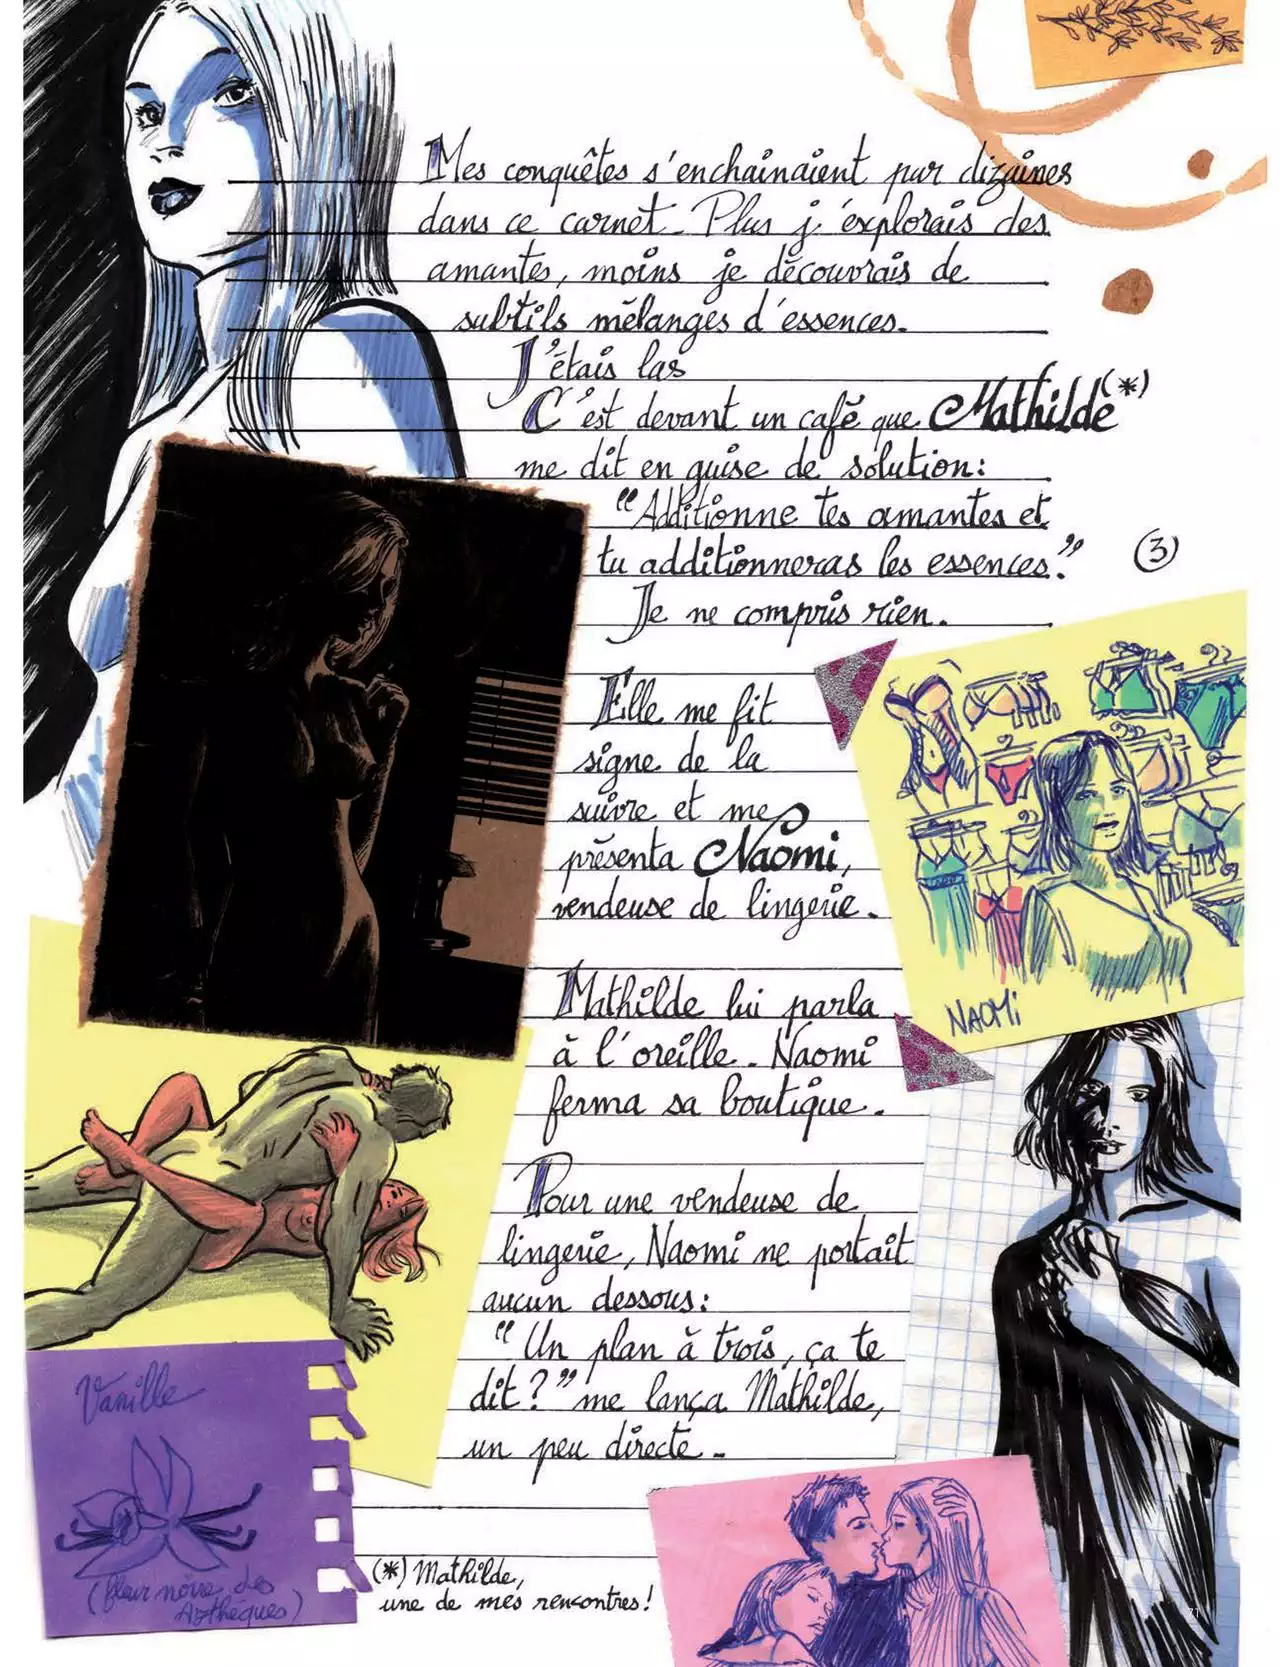 Mes conquêtes s'enchainaient par dizaines
dans ce carnet. Plus j'explorais des
amantes, moins je découvrais de
subtils mélanges d'essences.
J'étais las
C'est devant un café que Mathilde(*)
me dit en guise de solution:
"Additionne tes amantes et
tu additionneras les essences."
(3)
Je ne compris rien.
Elle me fit
signe de la
suivre et me
présenta Naomi,
vendeuse de lingerie.
NAOMi
Mathilde lui parla
à l'oreille. Naomi
ferma sa boutique.
Pour une vendeuse de
lingerie, Naomi ne portait
aucun dessous:
"Un plan à trois, ça te
dit?" me lança Mathilde,
un peu directe.
Vanille
(fleur noire des
Azthéques)
(*) Mathilde,
une de mes rencontres!
71